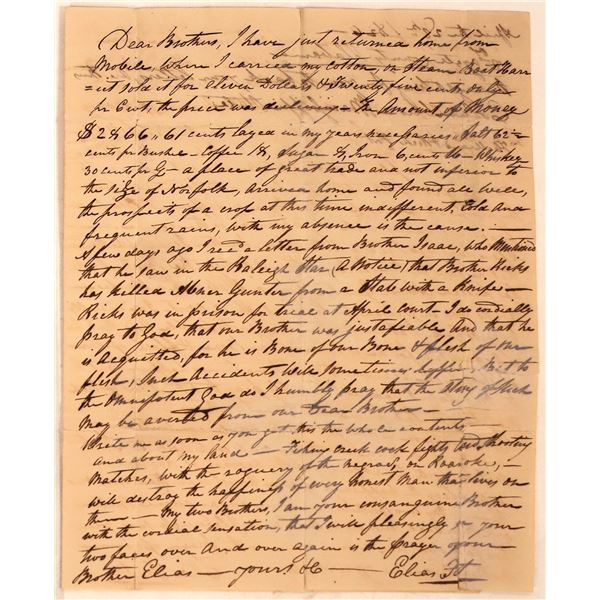 Dear Brothers, I have just returned home from
Mobile, where I carried my Cotton, on Steam Boat Harr=
=iet sold it for Eleven Dollars & Twenty five cents only
pr Cwt, the price was declining — The Amount of Money
$2866"61 cents layed in my years necessaries Salt 62=
cents pr Bushel — Coffee 18, Sugar Iron 6, cents lb — Whiskey
30 cents pr G — a place of great trade and not inferior to
the Size of Norfolk, Arrived home and found all well,
the prospects of a crop at this time indifferent. Cold and
frequent rains, with my absence is the cause. —
A few days ago I recd a letter from Brother Isaac, who Mentioned
that he saw in the Raleigh Star (A Notice) that Brother Ricks
has Killed Abner Gunter from a Stab with a Knife —
Ricks was in prison for trial at April Court. I do cordially
pray to God, that our Brother was justafieable and that he
is Acquitted, for he is Bone of our Bone & flesh of our
flesh, Such Accidents will sometimes happen, But to
the Omnipotent God do I humbly pray that the Story of Such
May be averted from our Dear Brother —
Write me as soon as you get this the whole contents
and about my land — Fishing creek cock fights and shooting
matches, with the roguery of the negroes, on Roanoke, —
will destroy the happiness of every honest Man that lives on
them — My two Brothers, I am your consanguine Brother
with the cordial sensation, that I will pleasingly your
two faces over and over again is the prayer of your
Brother Elias — yours &c — Elias